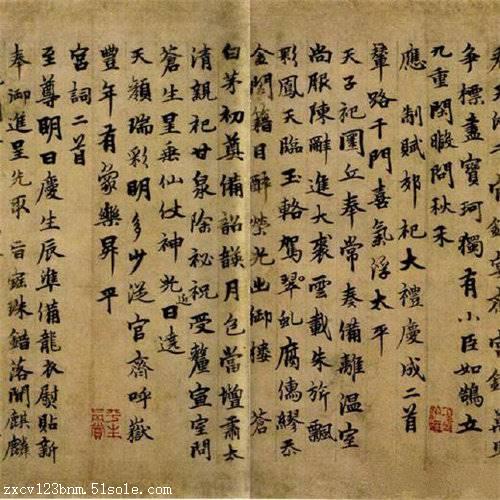 争標盡寶珂獨有小臣如鵠立
九重閑暇問秋禾
應制賦郊祀大禮慶成二首
輦路千門喜氣浮太平
天子祀圜丘奉常奏備離溫室
尚服陳辭進大裘雲載朱旂飄
彩鳳天臨玉輅駕翠虬腐儒繆忝
金閨籍目醉榮光出御樓 蒼
白茅初奠備韶頀月色當壇肅太
清親祀甘泉除祕祝受釐宣室問
蒼生呈垂仙仗神光近日遶
天顏瑞彩明多少從官齋呼嶽
豐年有象樂昇平
宮詞二首
至尊明日慶生辰準備龍衣熨貼新
奉御進呈先取旨寶珠錯落間麒麟
zxcv123bnm.51sole.com